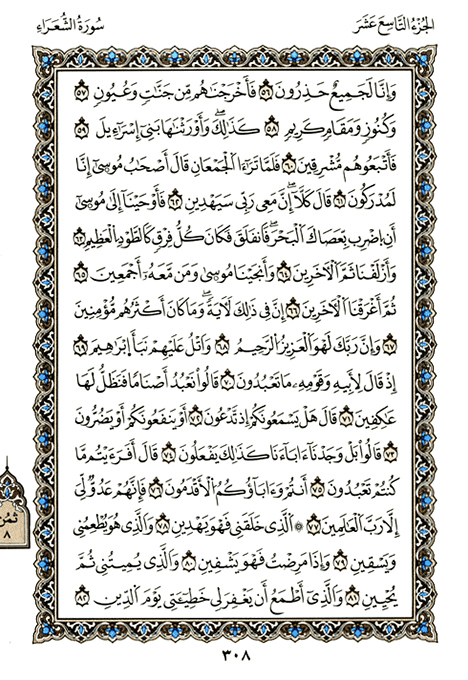 الجزء التاسع عشر
سورة الشعراء
وَإِنَّا لَجَمِيعٌ حَٰذِرُونَ ٥٦ فَأَخْرَجْنَٰهُم مِّن جَنَّٰتٍ وَعُيُونٍ ٥٧
وَكُنُوزٍ وَمَقَامٍ كَرِيمٍ ٥٨ كَذَٰلِكَ وَأَوْرَثْنَٰهَا بَنِىٓ إِسْرَٰٓءِيلَ ٥٩
فَأَتْبَعُوهُم مُّشْرِقِينَ ٦٠ فَلَمَّا تَرَٰٓءَا ٱلْجَمْعَانِ قَالَ أَصْحَٰبُ مُوسَىٰٓ إِنَّا
لَمُدْرَكُونَ ٦١ قَالَ كَلَّآ إِنَّ مَعِىَ رَبِّى سَيَهْدِينِ ٦٢ فَأَوْحَيْنَآ إِلَىٰ مُوسَىٰٓ
أَنِ ٱضْرِب بِّعَصَاكَ ٱلْبَحْرَ فَٱنفَلَقَ فَكَانَ كُلُّ فِرْقٍ كَٱلطَّوْدِ ٱلْعَظِيمِ ٦٣
وَأَزْلَفْنَا ثَمَّ ٱلْءَاخَرِينَ ٦٤ وَأَنجَيْنَا مُوسَىٰ وَمَن مَّعَهُۥٓ أَجْمَعِينَ ٦٥
ثُمَّ أَغْرَقْنَا ٱلْءَاخَرِينَ ٦٦ إِنَّ فِى ذَٰلِكَ لَءَايَةً وَمَا كَانَ أَكْثَرُهُم مُّؤْمِنِينَ
٦٧ وَإِنَّ رَبَّكَ لَهُوَ ٱلْعَزِيزُ ٱلرَّحِيمُ ٦٨ وَٱتْلُ عَلَيْهِمْ نَبَأَ إِبْرَٰهِيمَ ٦٩
إِذْ قَالَ لِأَبِيهِ وَقَوْمِهِۦ مَا تَعْبُدُونَ ٧٠ قَالُوا۟ نَعْبُدُ أَصْنَامًا فَنَظَلُّ لَهَا
عَٰكِفِينَ ٧١ قَالَ هَلْ يَسْمَعُونَكُمْ إِذْ تَدْعُونَ ٧٢ أَوْ يَنفَعُونَكُمْ أَوْ يَضُرُّونَ
٧٣ قَالُوا۟ بَلْ وَجَدْنَآ ءَابَآءَنَا كَذَٰلِكَ يَفْعَلُونَ ٧٤ قَالَ أَفَرَءَيْتُم مَّا
كُنتُمْ تَعْبُدُونَ ٧٥ أَنتُمْ وَءَابَآؤُكُمُ ٱلْأَقْدَمُونَ ٧٦ فَإِنَّهُمْ عَدُوٌّ لِّىٓ
إِلَّا رَبَّ ٱلْعَٰلَمِينَ ٧٧ ۞ ٱلَّذِى خَلَقَنِى فَهُوَ يَهْدِينِ ٧٨ وَٱلَّذِى هُوَ يُطْعِمُنِى
وَيَسْقِينِ ٧٩ وَإِذَا مَرِضْتُ فَهُوَ يَشْفِينِ ٨٠ وَٱلَّذِى يُمِيتُنِى ثُمَّ
يُحْيِينِ ٨١ وَٱلَّذِىٓ أَطْمَعُ أَن يَغْفِرَ لِى خَطِيٓـَٔتِى يَوْمَ ٱلدِّينِ ٨٢
ثمن
٨
٣٠٨